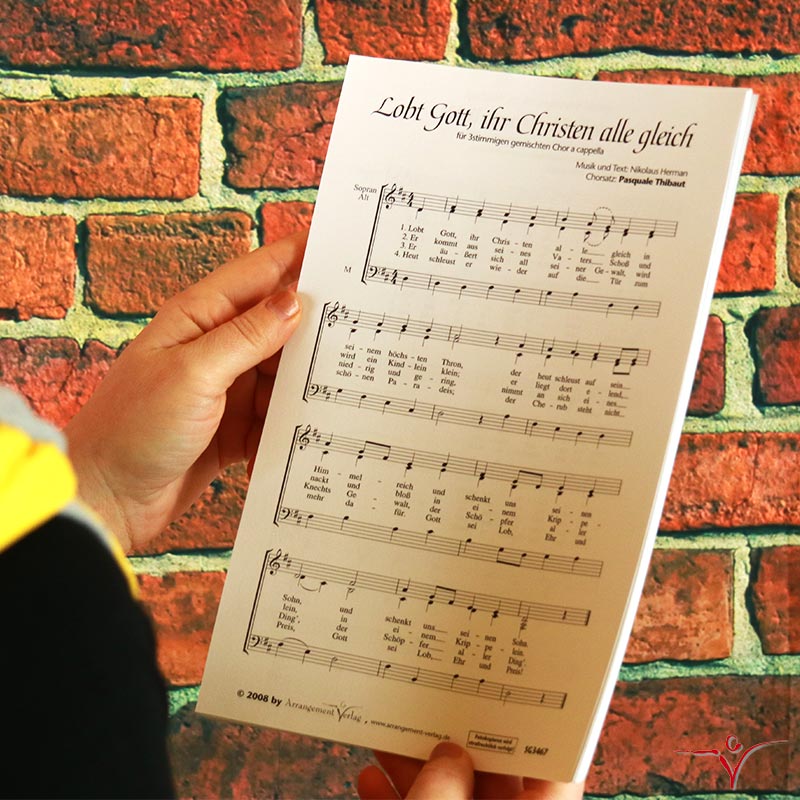 Lobt Gott, ihr Christen alle gleich
für 3stimmigen gemischten Chor a cappella
Musik und Text: Nikolaus Herman
Chorsatz: Pasquale Thibaut
Sopran
Alt
1. Lobt Gott, ihr Chris - ten al - le gleich in
2. Er kommt aus sei - nes Va - ters Schoß und
3. Er äu - ßert sich all sei - ner Ge - walt, wird
4. Heut schleust er wie - der auf die Tür zum
M
sei - nem höchs - ten Thron, der heut schleust auf sein
wird ein Kind - lein klein; er liegt dort e - lend,
nied - rig und ge - ring, nimmt an sich ei - nes
schö - nen Pa - ra - deis; der Che - rub steht nicht
Him - mel - reich und schenkt uns sei - nen
nackt und bloß in ei - nem Krip - pe -
Knechts Ge - walt, der Schö - pfer al - ler
mehr da - für. Gott sei Lob, Ehr und
Sohn, und schenkt uns sei - nen Sohn.
lein, in ei - nem Krip - pe - lein.
Ding', der Schöp - fer al - ler Ding'.
Preis, Gott sei Lob, Ehr und Preis!
© 2008 by Arrangement Verlag , www.arrangement-verlag.de
Fotokopieren wird
strafrechtlich verfolgt!
SG3467